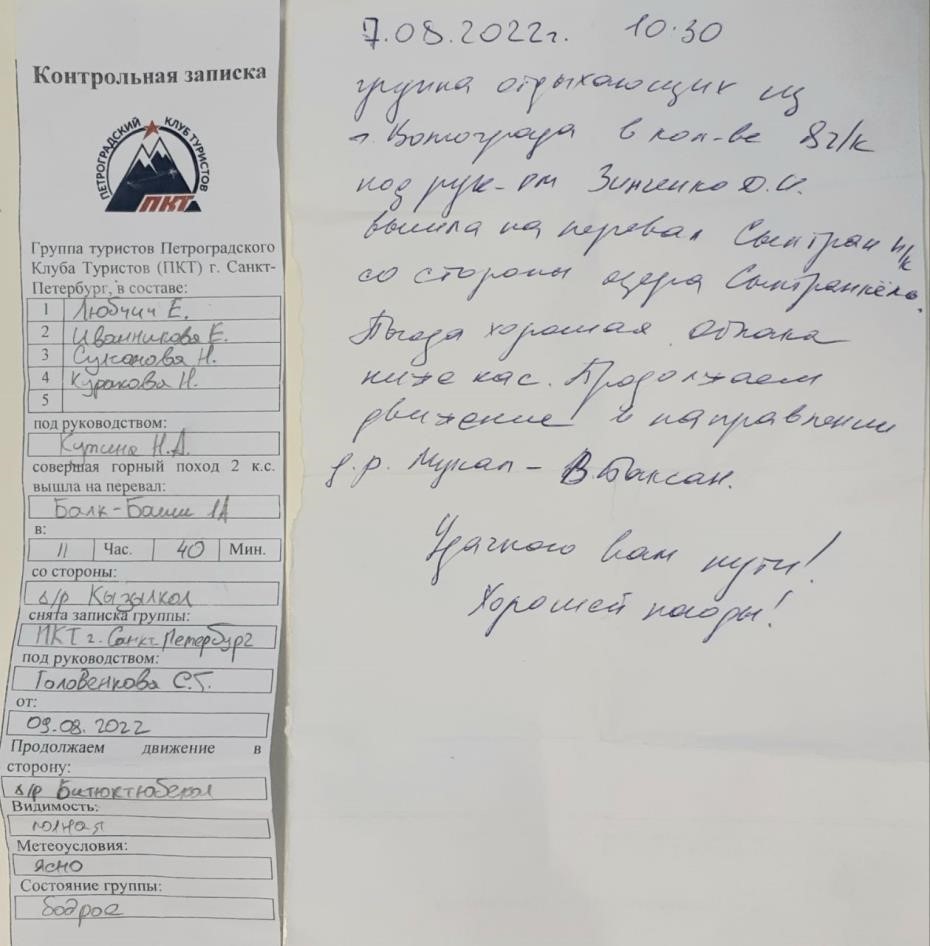 Контрольная записка
ПЕТРОГРАДСКИЙ КЛУБ ТУРИСТОВ
ПКТ
Группа туристов Петроградского
Клуба Туристов (ПКТ) г. Санкт-
Петербург, в составе:
1 Любчич Е.
2 Иванникова Е.
3 Сулханова Н.
4 Куракова Н.
5
под руководством:
Н.А.
совершая горный поход 2 к.с.
вышла на перевал:
Балк-Баши 1А
в:
11 Час. 40 Мин.
со стороны:
д/р Кызылкол
снята записка группы:
ПКТ г. Санкт Петербург
под руководством:
Головенкова С.Г.
от:
09.08.2022
Продолжаем движение в
сторону:
д/р Битюктюбекол
Видимость:
полная
Метеоусловия:
ясно
Состояние группы:
бодрое
7.08.2022г. 10.30
группа отдыхающих из
г. Волгограда в кол-ве 8 ч/к
под рук-ом Зинченко Д.И.
вышла на перевал Сылтран н/к
со стороны озера Сылтранкёль.
Погода хорошая облака
ниже нас. Продолжаем
движение в направлении
д.р. Мукал - В.Баксан.
Удачного вам пути!
Хорошей погоды!